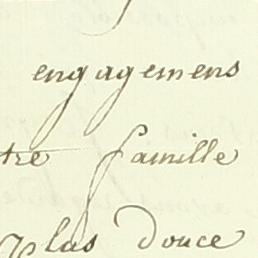 engagemens
tre famille
plus douce